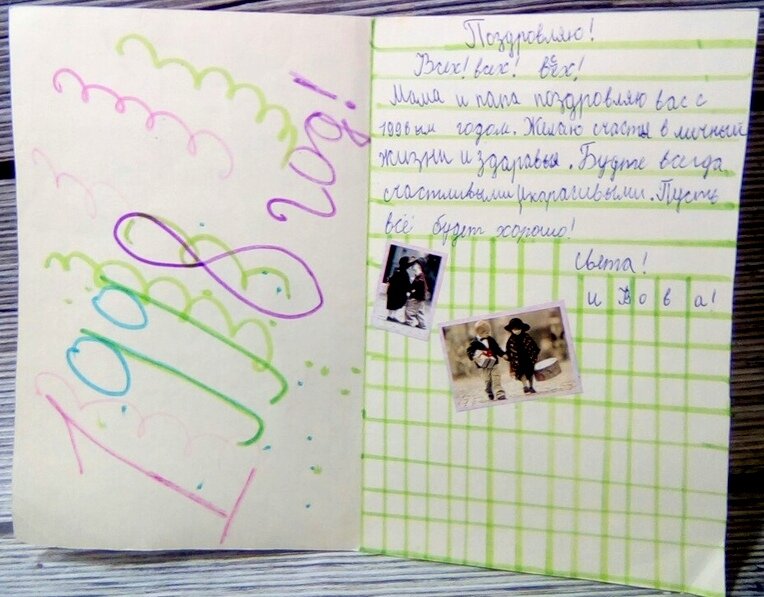 1998 год!
Поздровляю!
Всех! всех! всех!
Мама и папа поздровляю вас с
1998 ым годом. Желаю счастя в личный
жизни и здаравья. Будте всегда
счастливыми и карасивыми. Пусть
всё будет хорошо!
Света!
и Вова!